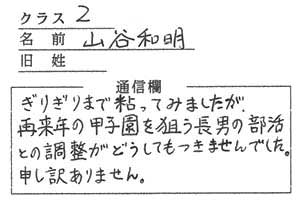 クラス 2
名前 山谷和明
旧姓
通信欄
ぎりぎりまで粘ってみましたが、
再来年の甲子園を狙う長男の部活
との調整がどうしてもつきませんでした。
申し訳ありません。